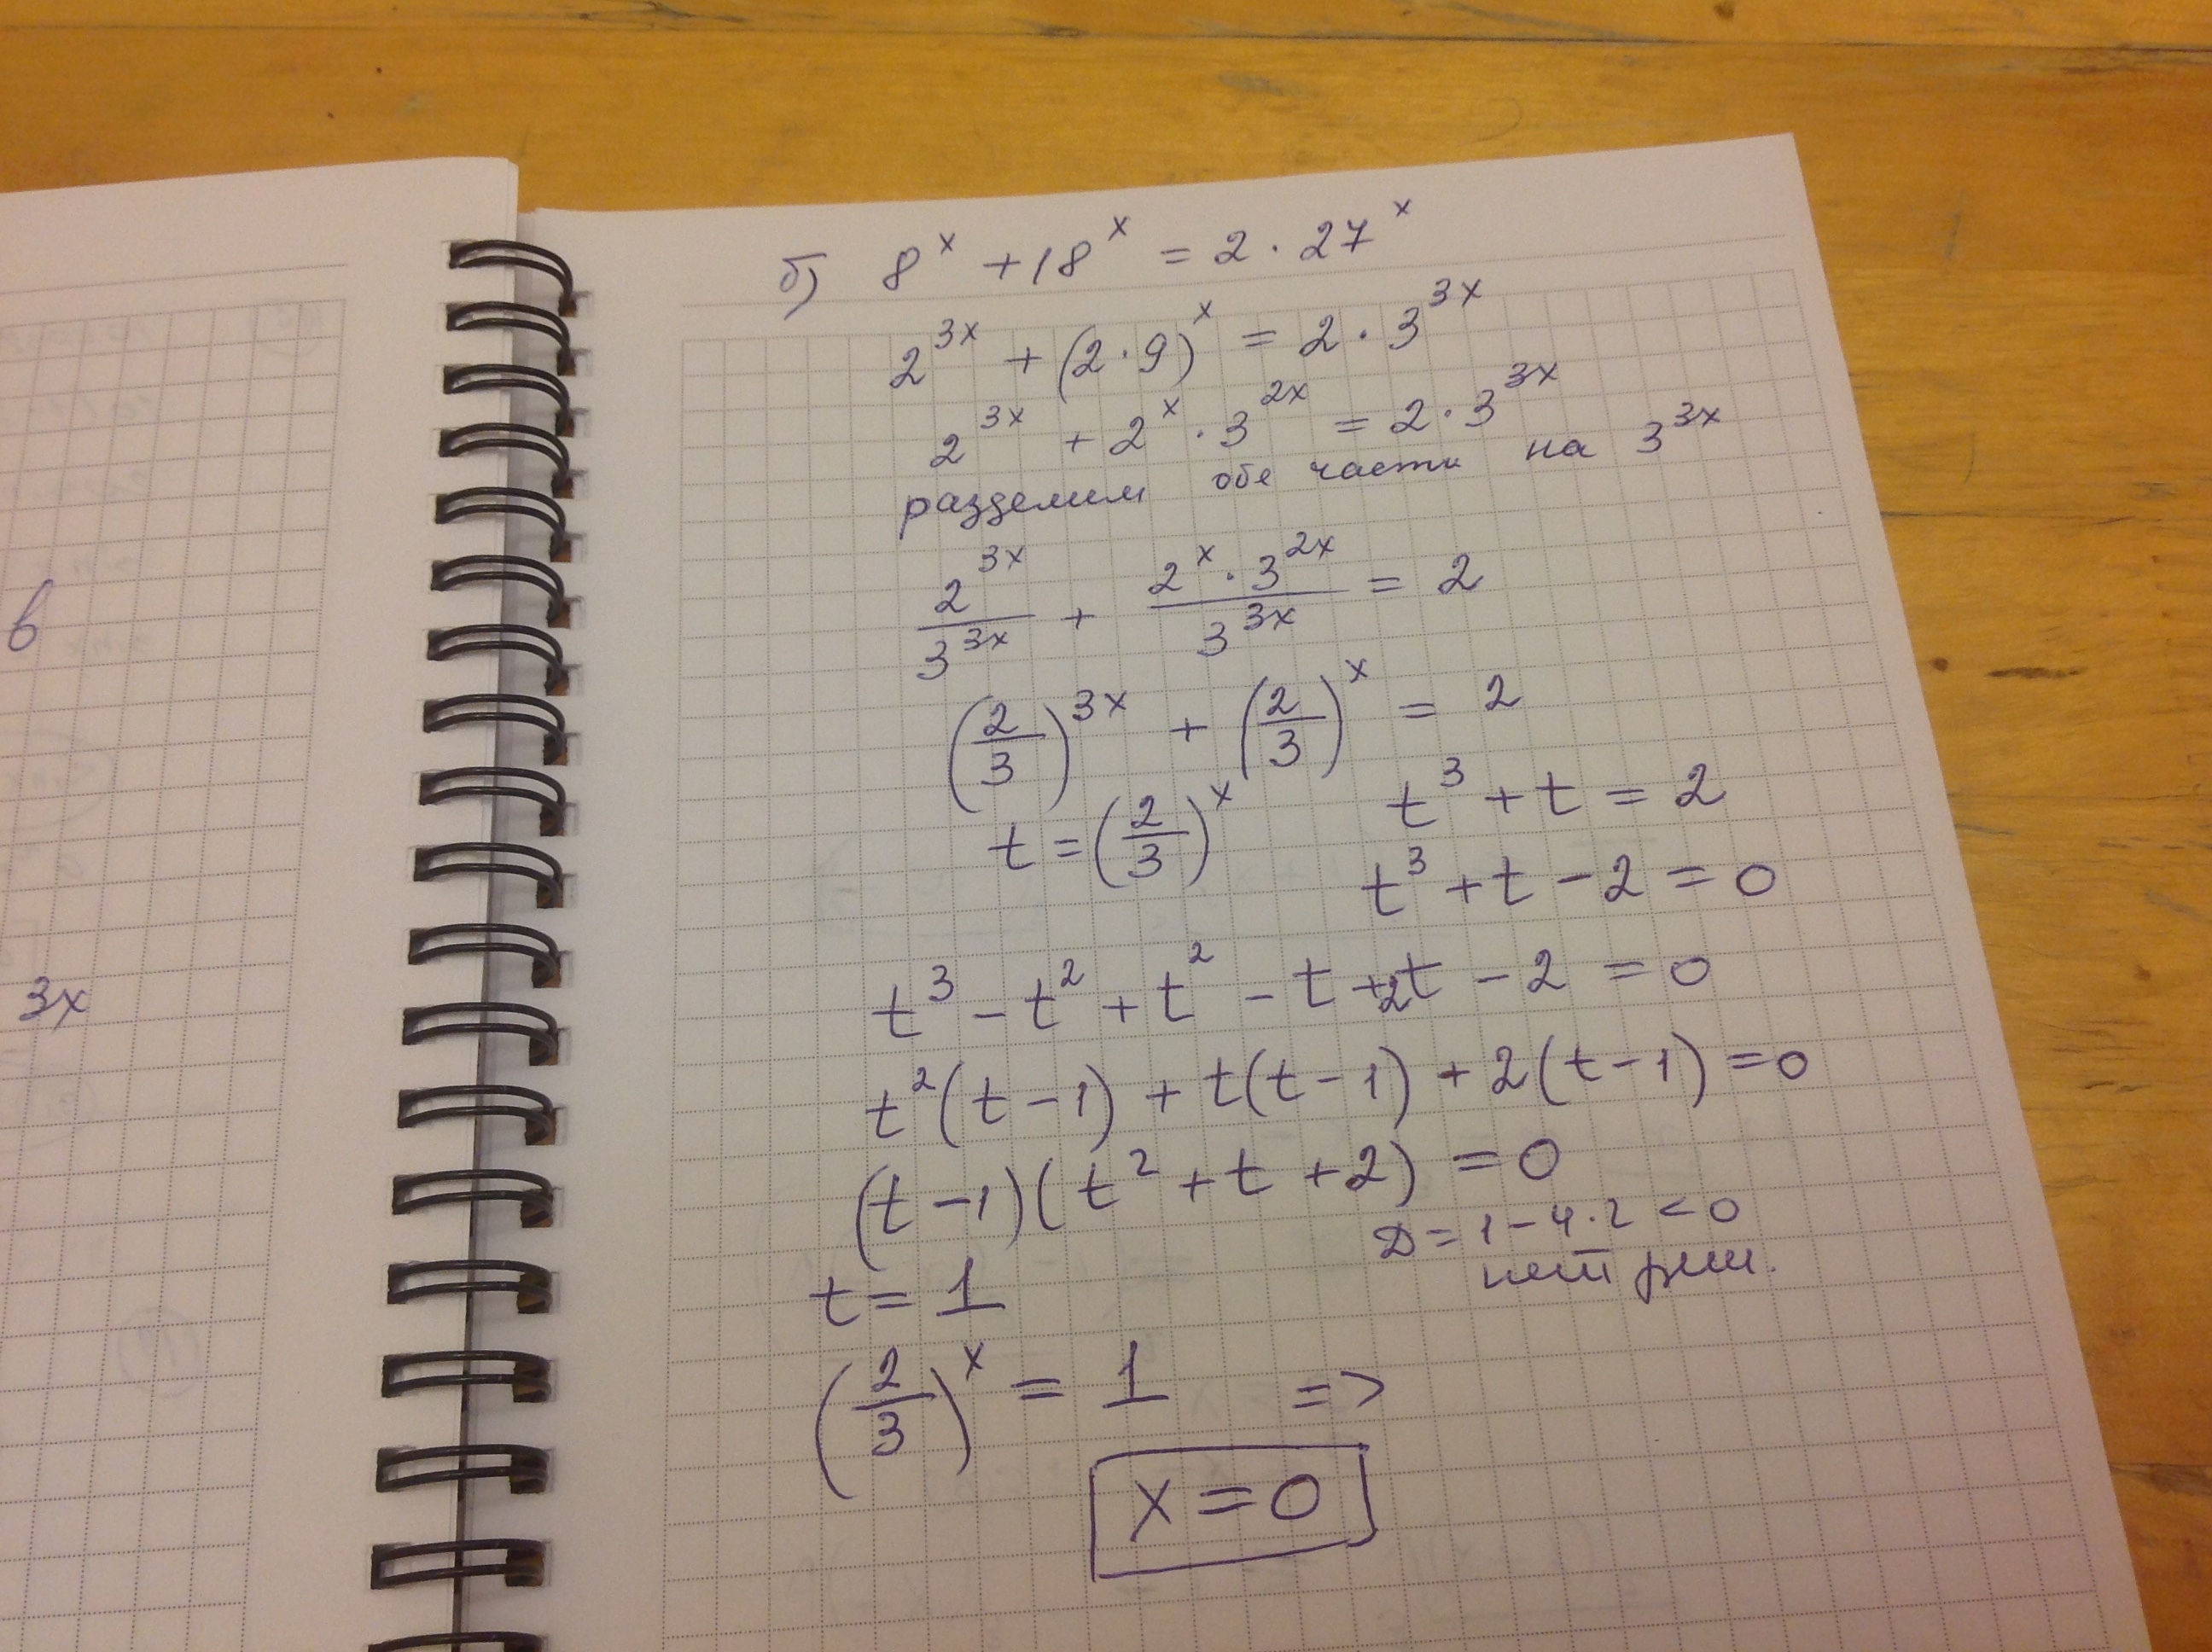 в
3x
б) 8^x + 18^x = 2 · 27^x
2^{3x} + (2 · 9)^x = 2 · 3^{3x}
2^{3x} + 2^x · 3^{2x} = 2 · 3^{3x}
разделим обе части на 3^{3x}
\frac{2^{3x}}{3^{3x}} + \frac{2^x · 3^{2x}}{3^{3x}} = 2
(\frac{2}{3})^{3x} + (\frac{2}{3})^x = 2
t = (\frac{2}{3})^x t^3 + t = 2
t^3 + t - 2 = 0
t^3 - t^2 + t^2 - t + 2t - 2 = 0
t^2(t - 1) + t(t - 1) + 2(t - 1) = 0
(t - 1)(t^2 + t + 2) = 0
D = 1 - 4 · 2 < 0
нет реш.
t = 1
(\frac{2}{3})^x = 1 =>
x = 0